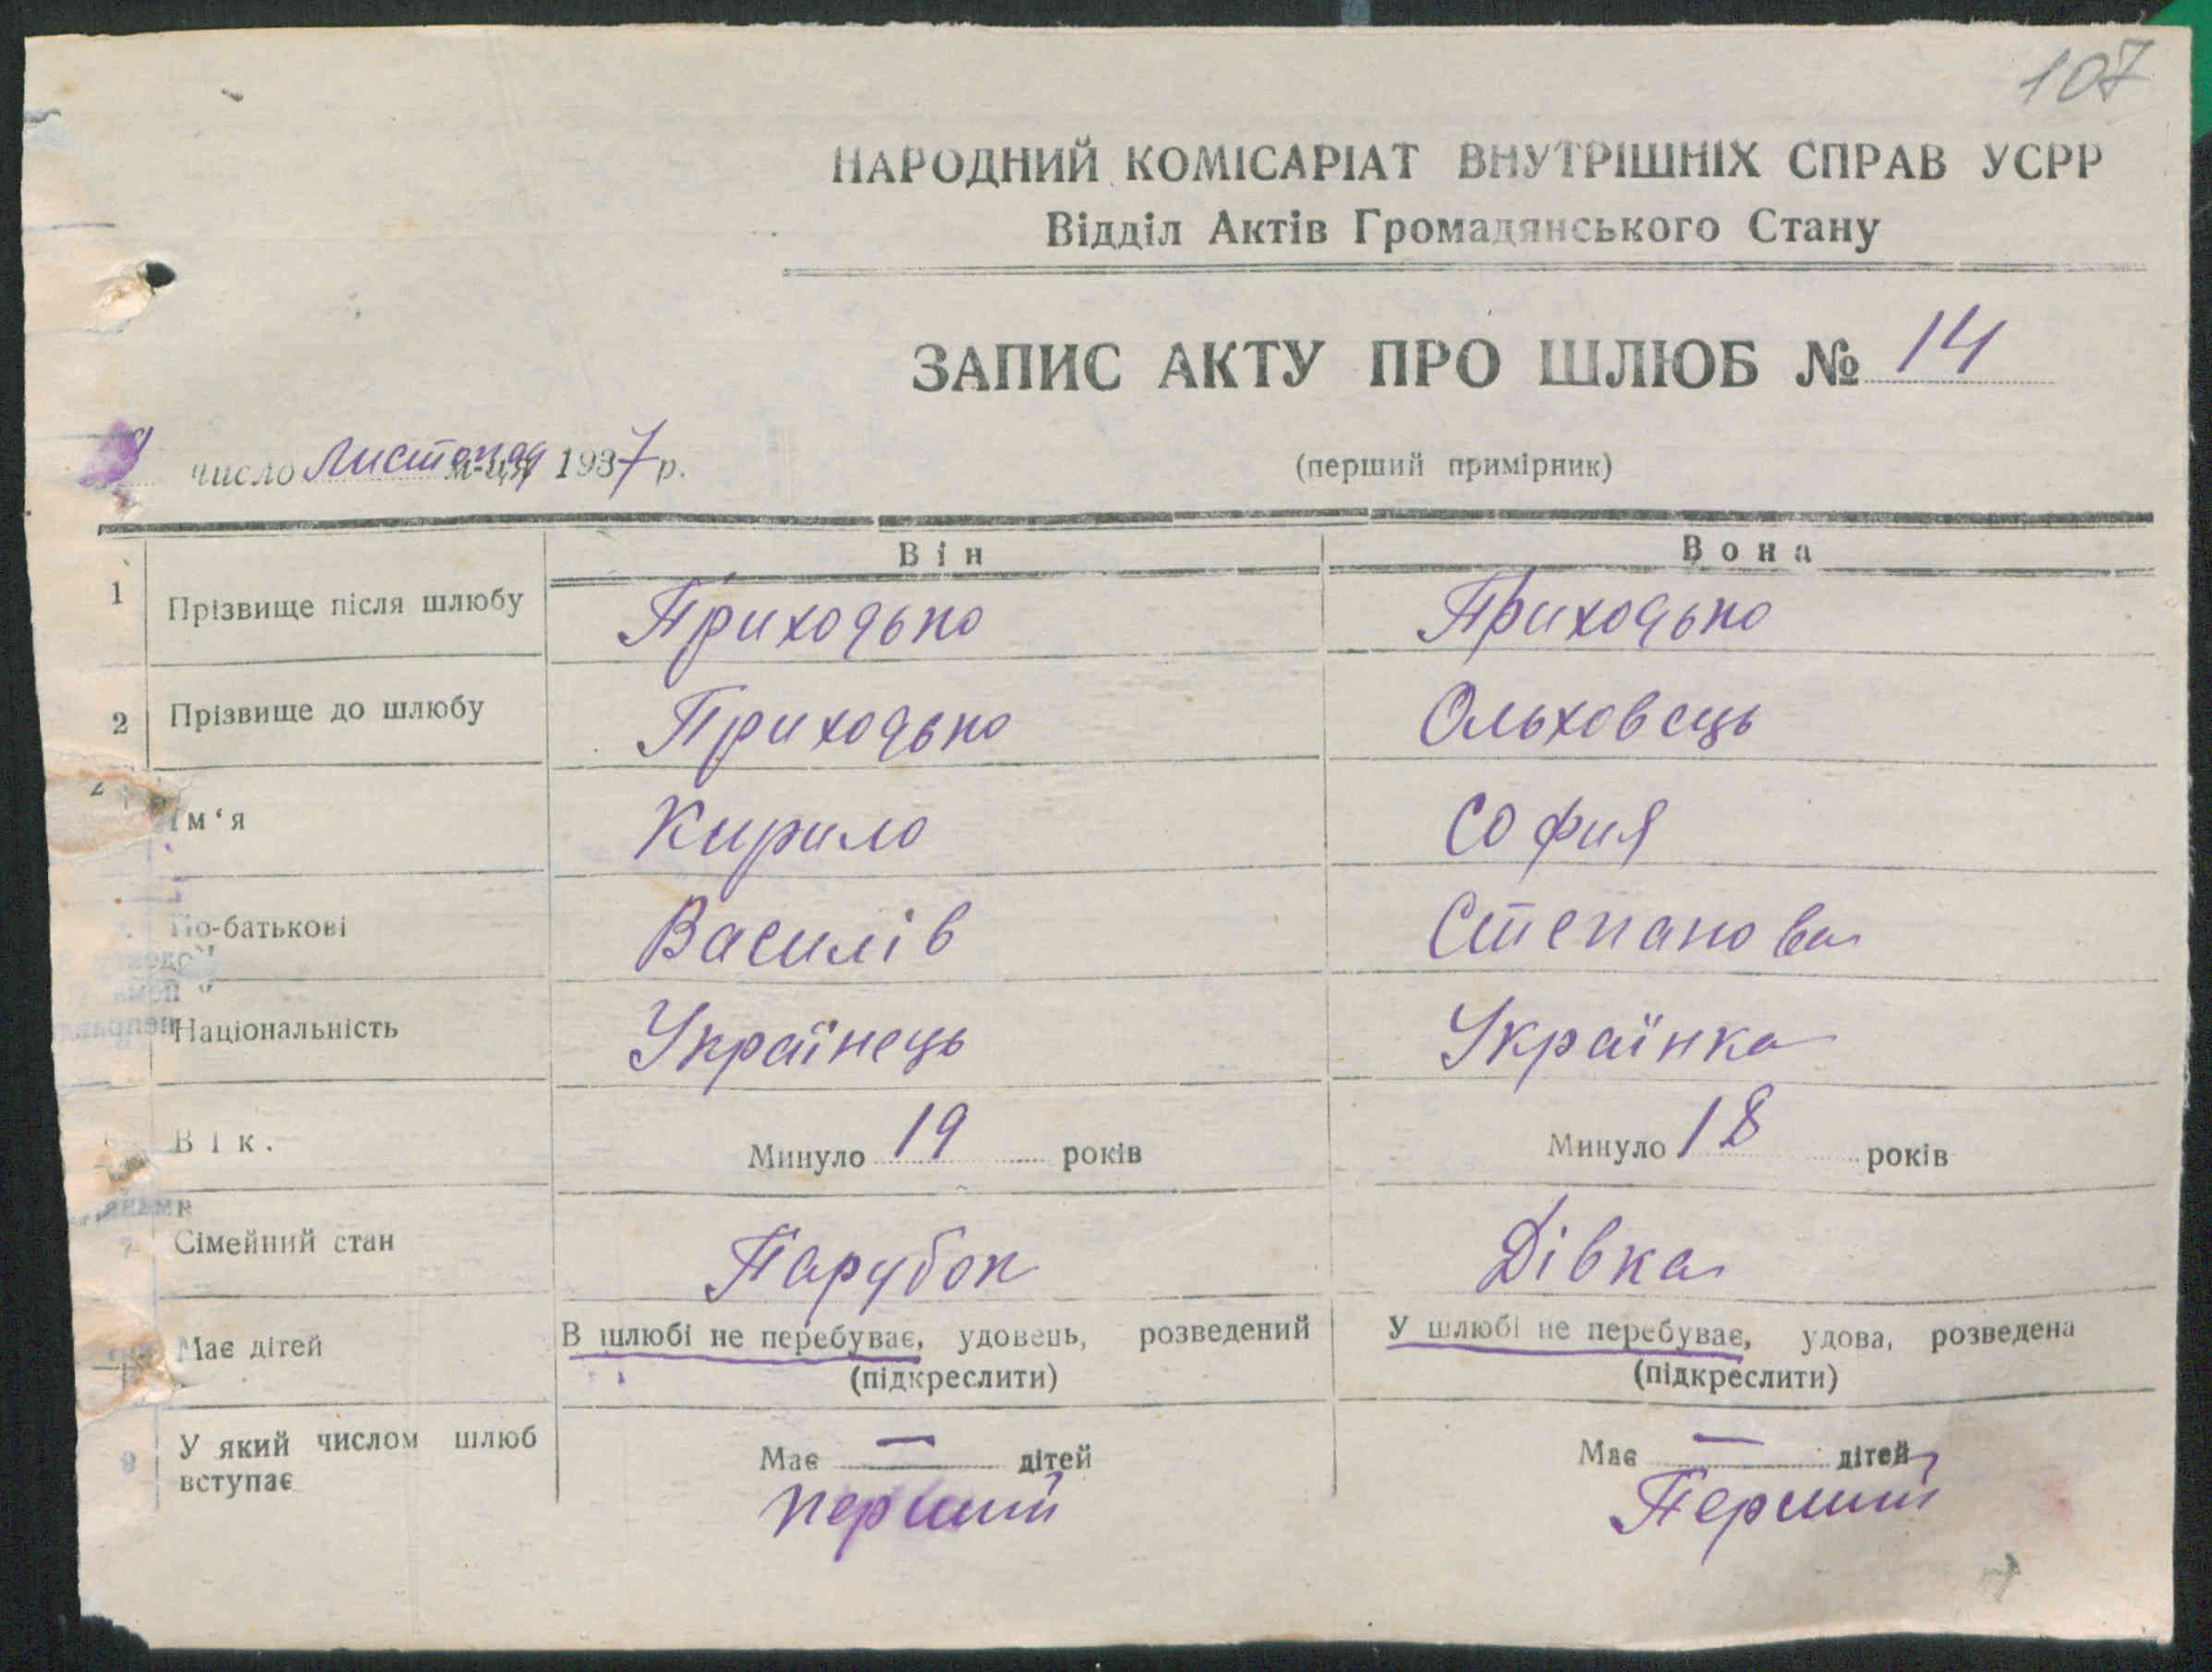 107
НАРОДНИЙ КОМІСАРІАТ ВНУТРІШНІХ СПРАВ УСРР
Відділ Актів Громадянського Стану
ЗАПИС АКТУ ПРО ШЛЮБ № 14
число листопад м-ця 1937 р.
(перший примірник)
Він Вона
1 Прізвище після шлюбу Приходько Приходько
2 Прізвище до шлюбу Приходько Ольховець
Ім‘я Кирило София
По-батькові Василів Степанова
Національність Українець Українка
Вік. Минуло 19 років Минуло 18 років
7 Сімейний стан Парубок Дівка
Має дітей В шлюбі не перебуває, удовець, розведений У шлюбі не перебуває, удова, розведена
(підкреслити) (підкреслити)
9 У який числом шлюб вступає Має — дітей Має — дітей
перший Перший